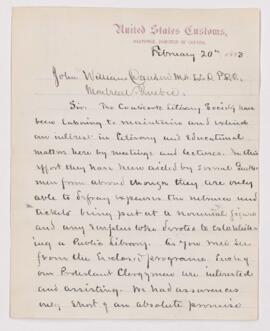 United States Customs,
COATICOOK, DOMINION OF CANADA,
February 20th 1883
John William Dawson M.A. L.L.D. F.R.S.
Montreal Quebec
Sir. The Coaticook Literary Society have
been laboring to maintain and extend
an interest in Literary and Educational
matters here by meetings and lectures. In this
effort they have been aided by several Gentle-
men from abroad though they are only
able to defray expenses. the entrance and
tickets being put at a nominal figure
and any surplus to be devoted to establish-
ing a Public Library. As you will see
from the enclosed programme. Some of
our Protestant Clergymen are interested
and assisting. We had assurances
only short of an absolute promise